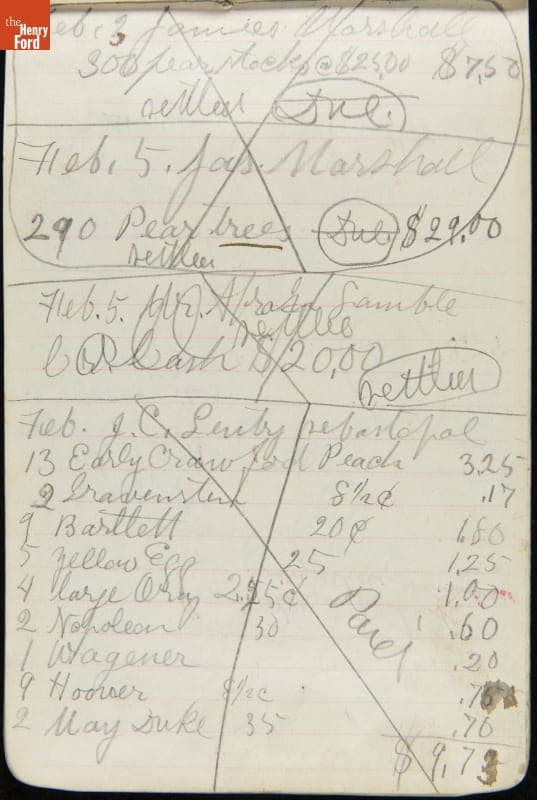 the
Henry
Ford
Feb. 3 James Marshall
300 pear stocks @ $25,00 $7,50
settled Due.
Feb. 5. Jas. Marshall
290 Pear trees Due $29.00
settled
Feb. 5. Mr. Gamble
settled
Cash $20,00
settled
Feb. J. C. Sebastopol
13 Early Crawford Peach 3.25
2 Gravenstein 8½¢ .17
9 Bartlett 20¢ 1.80
5 Yellow Egg 25 1,25
4 large 25¢ 1,00
2 Napolean 30 .60
1 Wagener .20
9 Hoover 8½c
2 May Duke 35 .70
Paid
$9,73